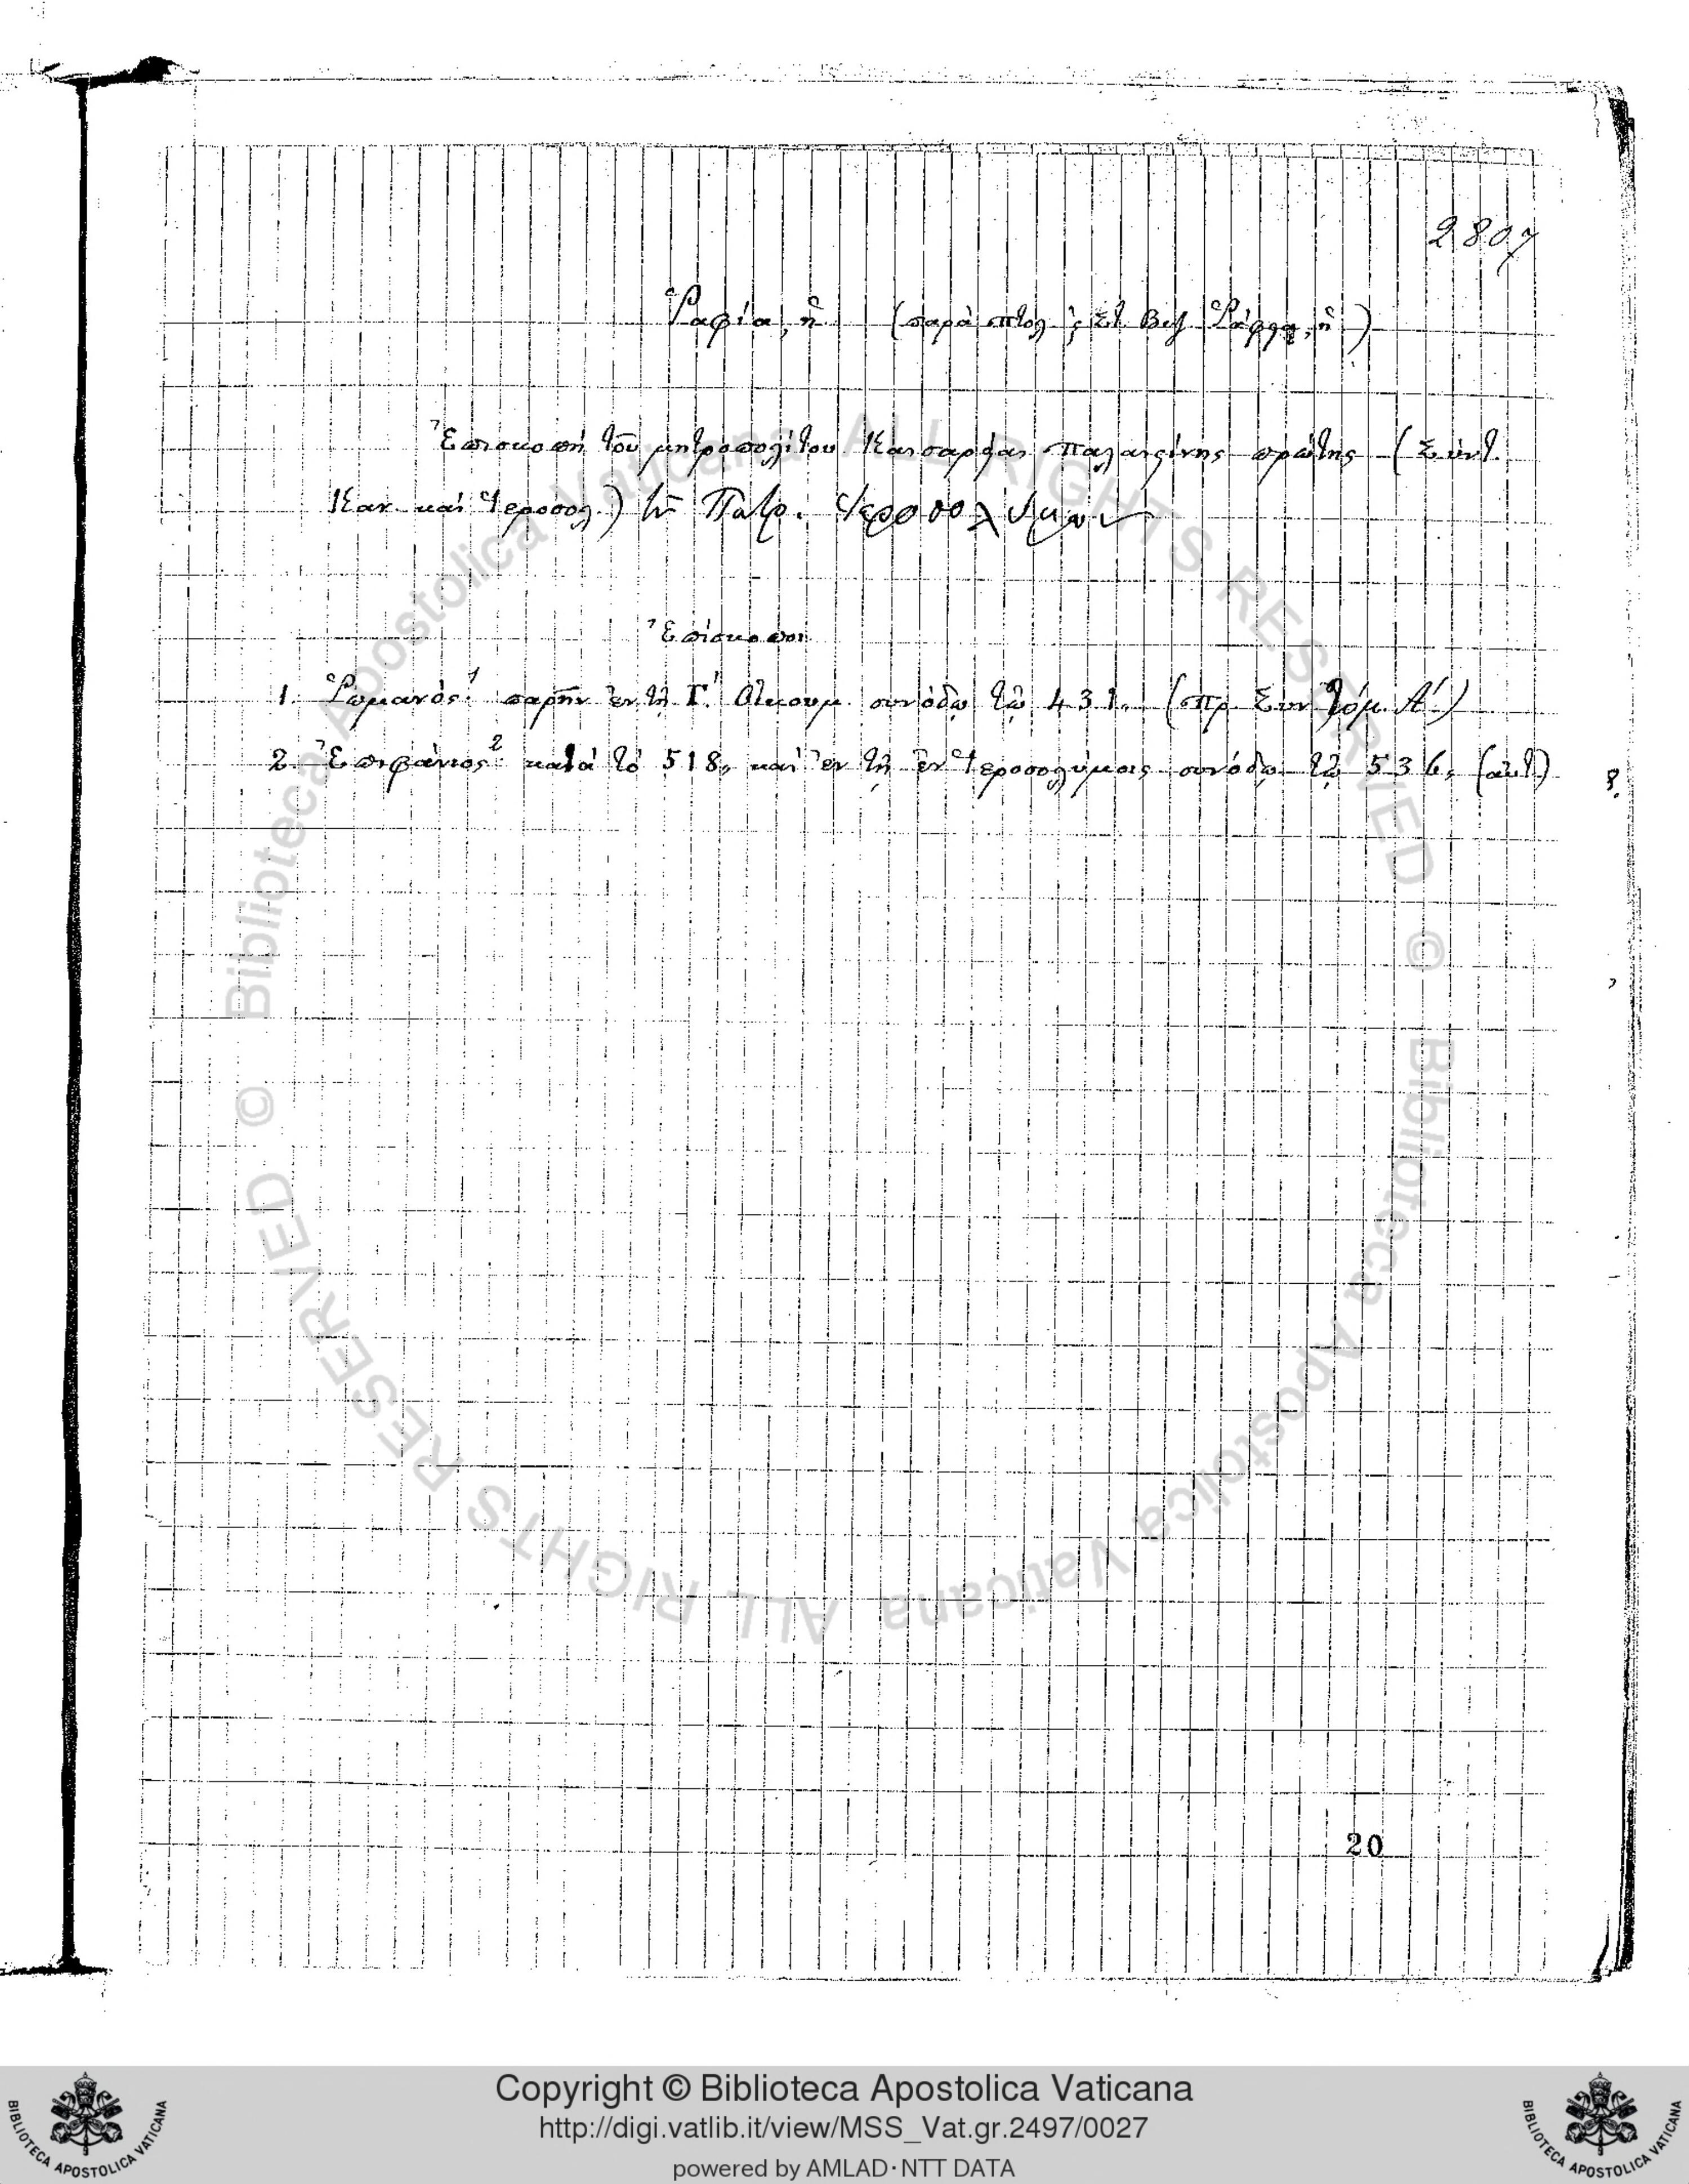 2807
Ῥαφία, ἡ (παρὰ Πτολ ϛ Στ Βυζ Ῥάφεια, ἡ)
Ἐπισκοπὴ τοῦ μητροπολίτου Καισαρείας Παλαιστίνης πρώτης (Σύντ.
Καν καὶ Ἱεροσολ.) τῶν Πατρ. Ἱεροσολύμων
Ἐπίσκοποι
1. Ῥωμανός¹ παρῆν ἐν τῇ Γʹ. Οἰκουμ συνόδῳ τῷ 431. (Πρ Συν Τόμ. Αʹ.)
2. Ἐπιφάνιος² κατὰ τὸ 518, καὶ ἐν τῇ ἐν Ἱεροσολύμοις συνόδῳ τῷ 536, (αὐτ)
20
© Biblioteca Apostolica Vaticana ALL RIGHTS RESERVED
© Biblioteca Apostolica Vaticana ALL RIGHTS RESERVED
Copyright © Biblioteca Apostolica Vaticana
http://digi.vatlib.it/view/MSS_Vat.gr.2497/0027
powered by AMLAD·NTT DATA
BIBLIOTECA APOSTOLICA VATICANA
BIBLIOTECA APOSTOLICA VATICANA